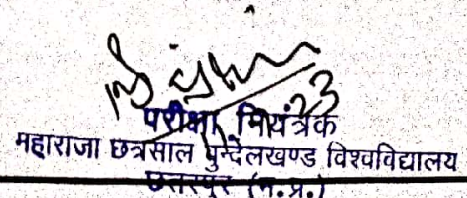 23
परीक्षा नियंत्रक
महाराजा छत्रसाल बुन्देलखण्ड विश्वविद्यालय
छतरपुर (म.प्र.)